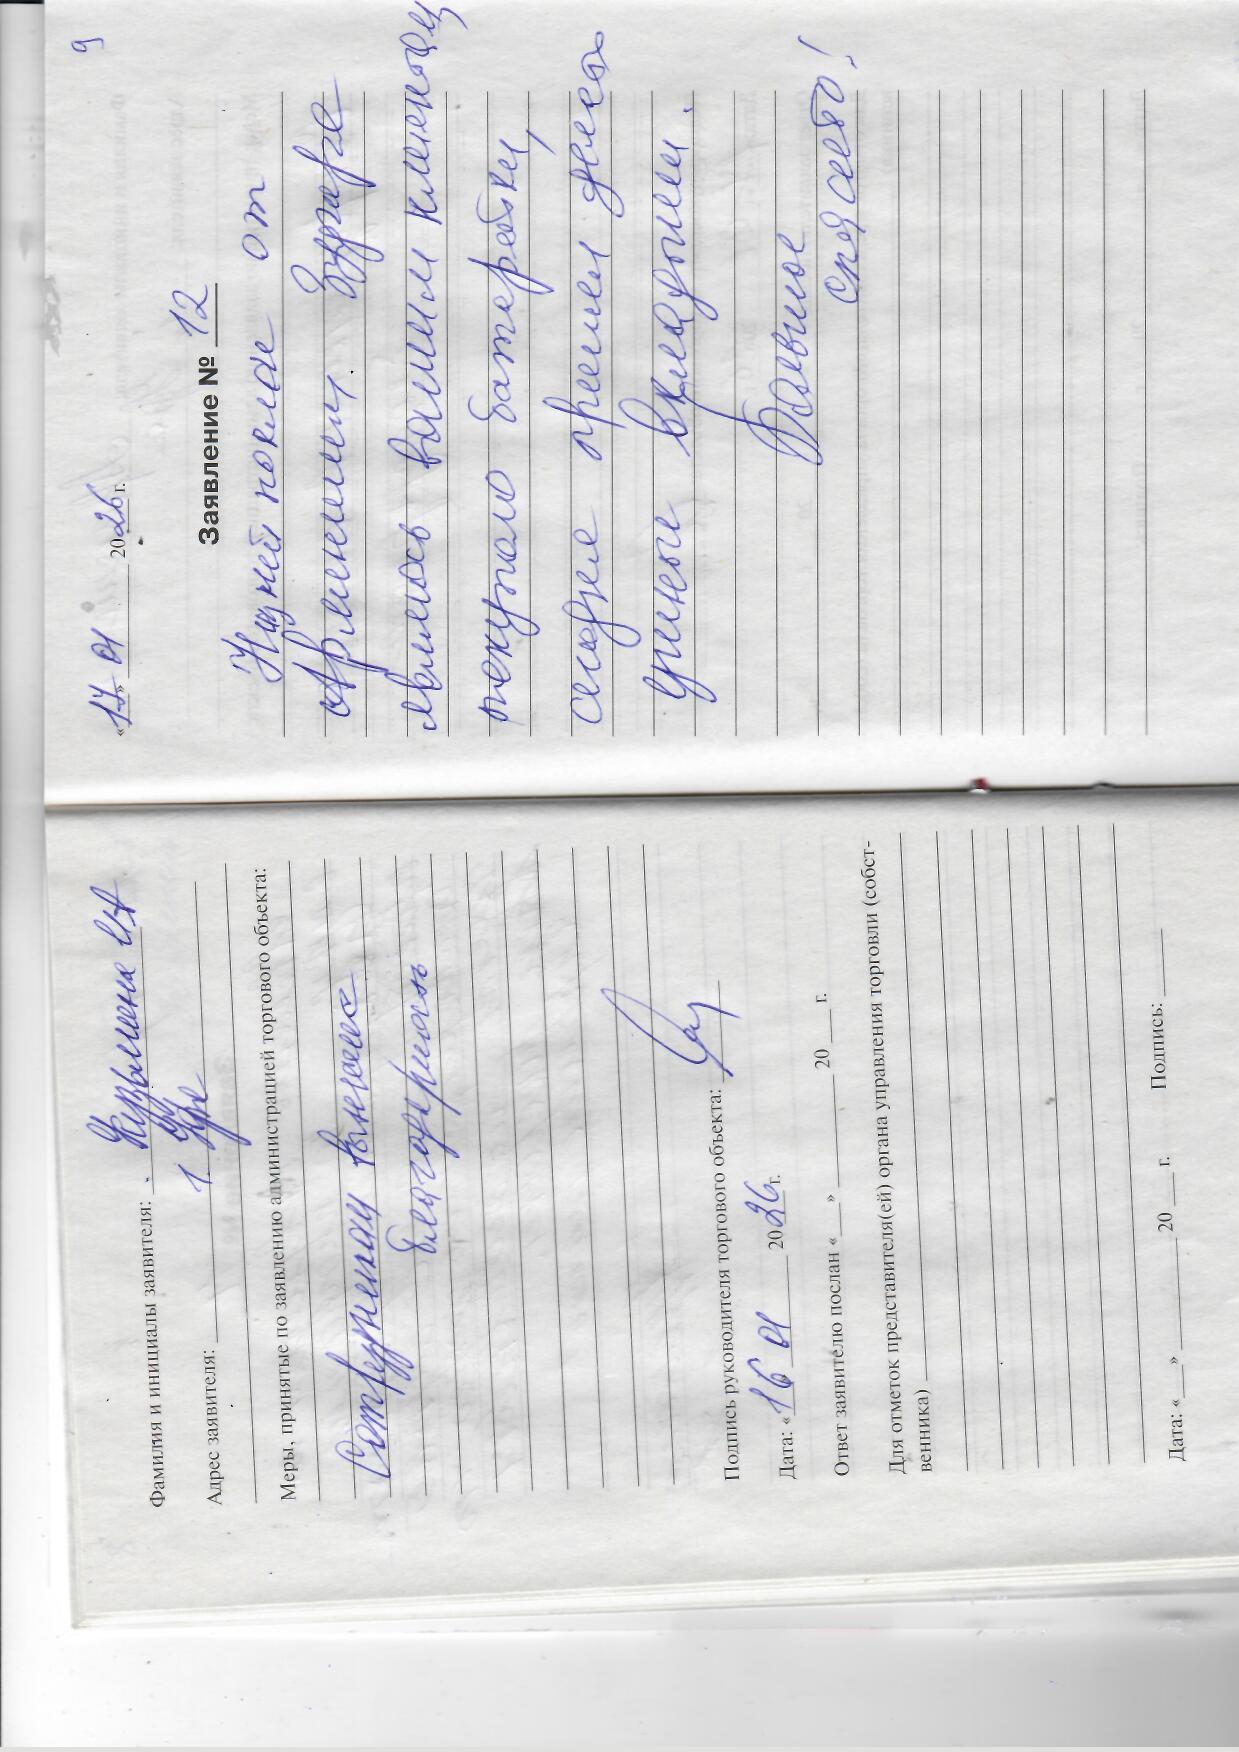 Фамилия и инициалы заявителя: Кузьмина И А
Адрес заявителя:
Меры, принятые по заявлению администрацией торгового объекта:
Сотрудникам вынесена
благодарность
Подпись руководителя торгового объекта:
Дата: «16» 01 2026 г.
Ответ заявителю послан «___» ________ 20 ___ г.
Для отметок представителя(ей) органа управления торговли (собст-
венника)
Дата: «___» ________ 20 ___ г. Подпись: ______
9
«17» 01 2026 г.
Заявление № 12
Низкий поклон от
Армении.
являюсь вашим клиентом
покупаю батарейки,
сегодня
вкладыши.
Большое
спасибо!